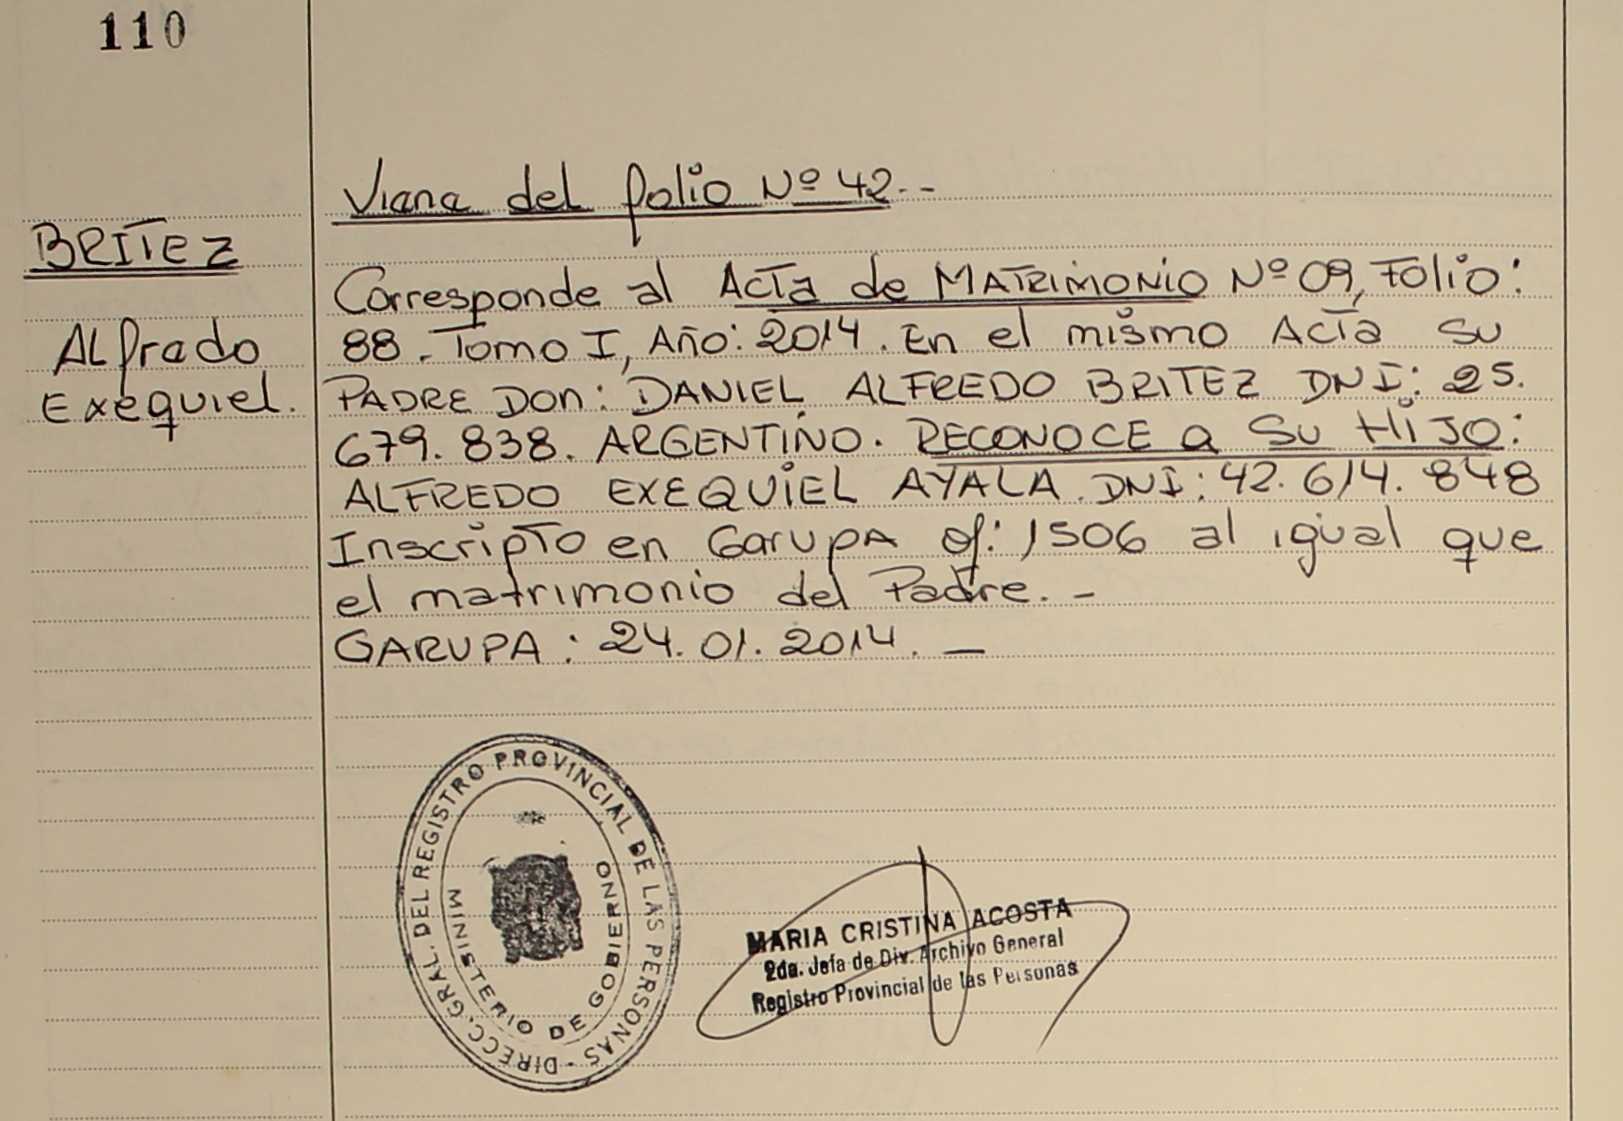 110
Viana del folio Nº 42.-
BRITEZ
Alfredo
Exequiel.
Corresponde al Acta de MATRIMONIO Nº 09, Folio:
88. Tomo I, Año: 2014. En el mismo Acta su
PADRE Don: DANIEL ALFREDO BRITEZ DNI: 25.
679.838. ARGENTINO. RECONOCE a Su HiJO:
ALFREDO EXEQUIEL AYALA. DNI: 42.614.848
Inscripto en Garupa of: 1506 al igual que
el matrimonio del Padre. -
GARUPA: 24.01.2014. —
DIRECC. GRAL. DEL REGISTRO PROVINCIAL DE LAS PERSONAS -
MINISTERIO DE GOBIERNO
MARIA CRISTINA ACOSTA
2da. Jefa de Div. Archivo General
Registro Provincial de las Personas